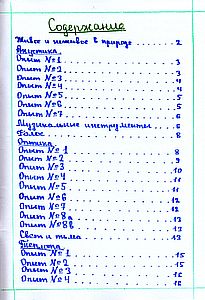 Содержание
Живое и неживое в природе 2
Акустика
Опыт №1 3
Опыт №2 3
Опыт №3 4
Опыт №4 4
Опыт №5 5
Опыт №6 5
Опыт №7 6
Музыкальные инструменты 6
Голос 8
Оптика
Опыт №1 8
Опыт №2 9
Опыт №3 10
Опыт №4 11
Опыт №5 11
Опыт №6 12
Опыт №7 12
Опыт №8а 13
Опыт №8в 13
Свет и тела 13
Теплота
Опыт №1 15
Опыт №2 15
Опыт №3 16
Опыт №4 16